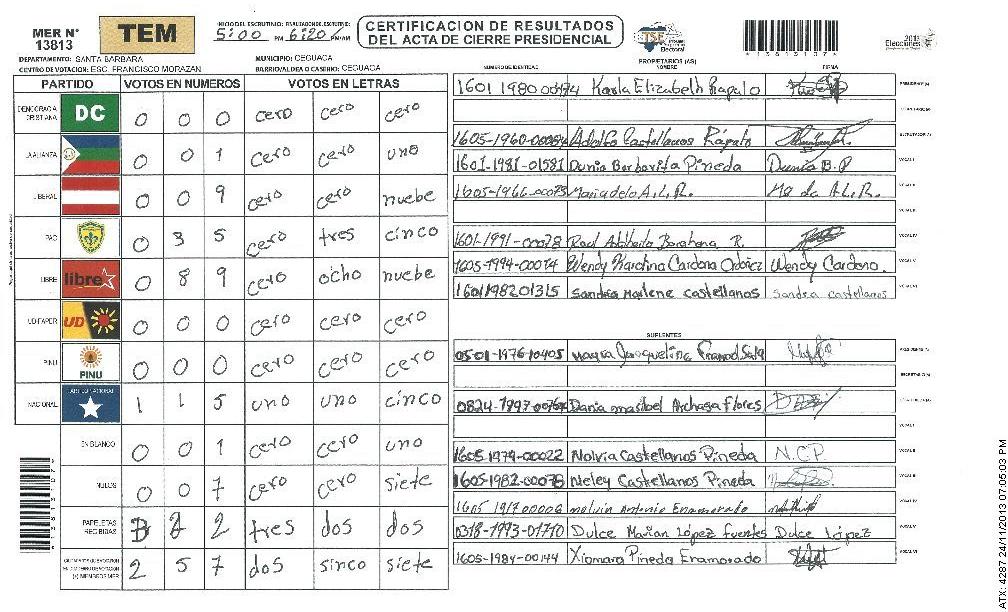 MER N° 13813
TEM
INICIO DEL ESCRUTINIO: 5:00 PM FINALIZACION DEL ESCRUTINIO: 6:20 PM/AM
CERTIFICACION DE RESULTADOS DEL ACTA DE CIERRE PRESIDENCIAL
TSE
2013 Elecciones
DEPARTAMENTO: SANTA BARBARA
MUNICIPIO: CEGUACA
CENTRO DE VOTACION: ESC. FRANCISCO MORAZAN
BARRIO/ALDEA O CASERIO: CEGUACA
PARTIDO VOTOS EN NUMEROS VOTOS EN LETRAS
DEMOCRACIA CRISTIANA DC 0 0 0 cero cero cero
LA ALIANZA 0 0 1 cero cero uno
LIBERAL 0 0 9 cero cero nuebe
PAC 0 3 5 cero tres cinco
LIBRE libre 0 8 9 cero ocho nuebe
UD FAPER UD 0 0 0 cero cero cero
PINU PINU 0 0 0 cero cero cero
NACIONAL 1 1 5 uno uno cinco
EN BLANCO 0 0 1 cero cero uno
NULOS 0 0 7 cero cero siete
PAPELETAS RECIBIDAS 3 2 2 tres dos dos
2 5 7 dos sinco siete
NUMERO DE IDENTIDAD PROPIETARIOS (AS) NOMBRE FIRMA
Karla Elizabeth Rapalo
Adolfo Castellanos Rápalo
1601-1981-01581 Dunia Barbarita Pineda Dunia B.P
1605-1966-00073 Maria de la A.L.R. Ma da A.L.R.
1601-1991-00078 Raul Adalberto Barahona R.
1605-1994-00074 Wendy Karolina Cardona Ordoñez Wendy Cardona.
1601198201315 Sandra Marlene castellanos sandra castellanos
SUPLENTES
0501-1976-10405
Dania maribel Archaga flores
1605-1974-00022 Nolvia Castellanos Pineda N.C.P
1605-1982-00078 Neley Castellanos Pineda
melvin Antonio Enamorado
0318-1993-01770 Dulce Marian López fuentes Dulce López
1605-1984-00144 Xiomara Pineda Enamorado
ATX: 4287 24/11/2013 07:05:03 PM